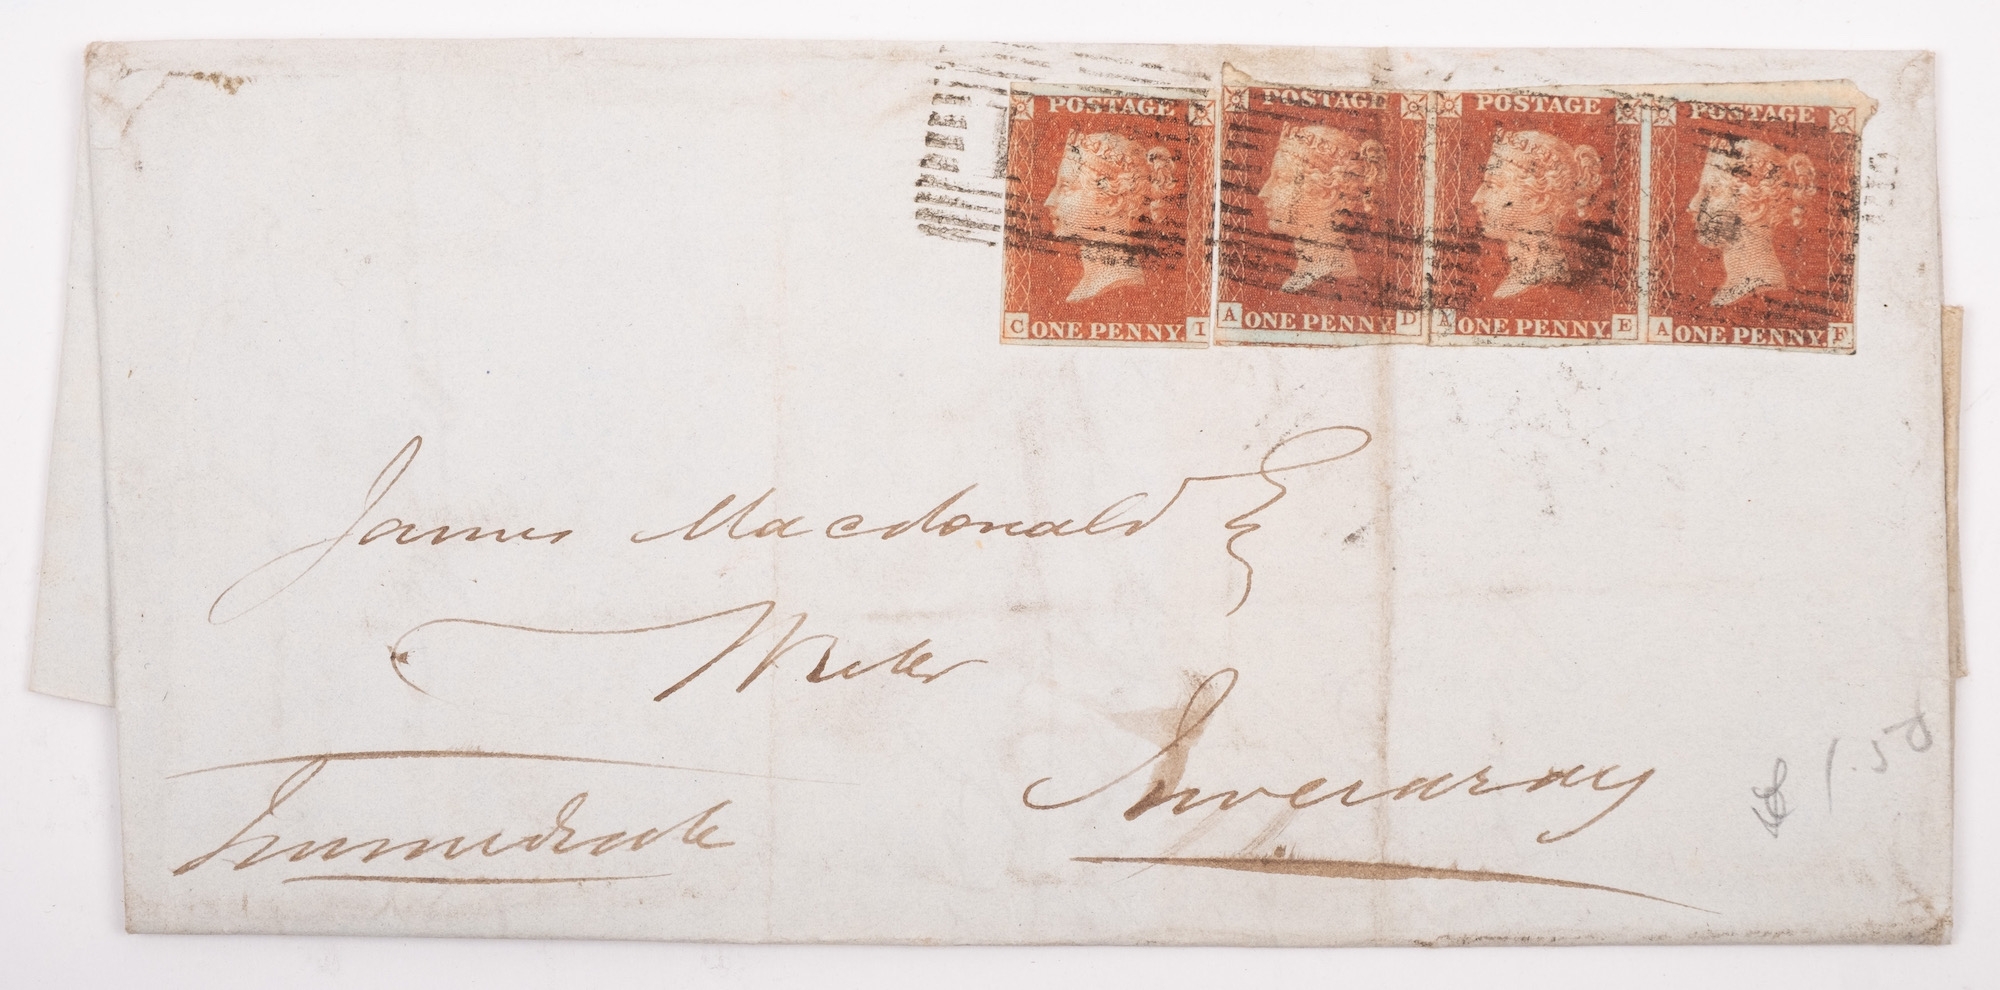 POSTAGE POSTAGE POSTAGE POSTAGE
C ONE PENNY. I A ONE PENNY. D A ONE PENNY. E A ONE PENNY. F
James Macdonald Esq
Writer
Inveraray
Immediate
1.50